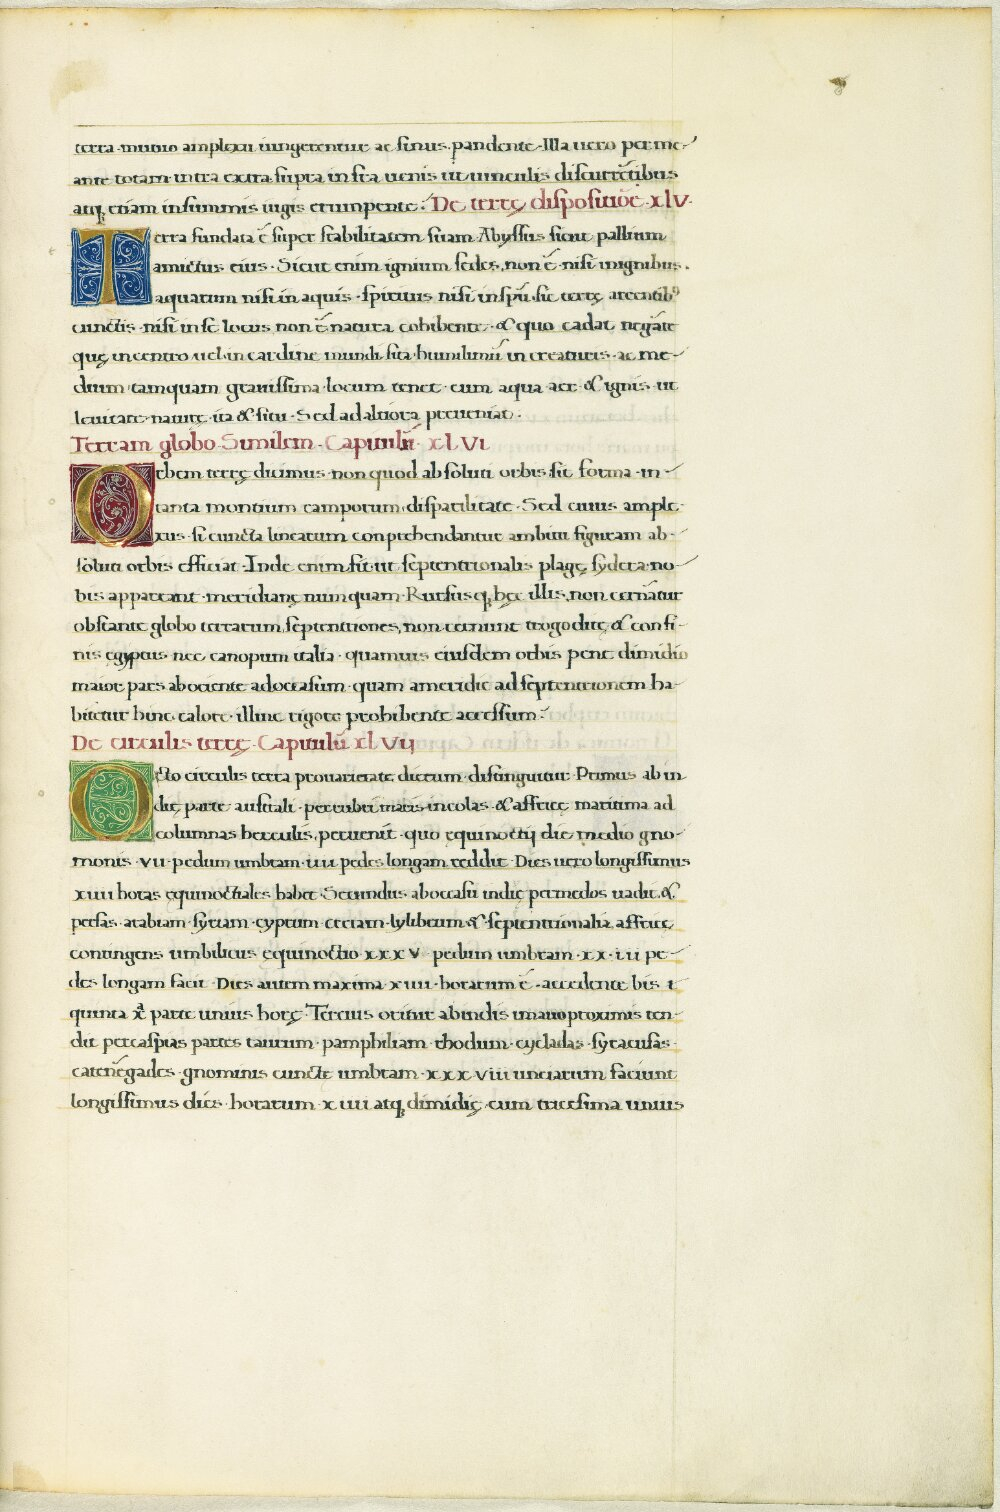 terra mutuo amplexu iungerentur ac sinus pandente. Illa uero perme-
ante totam intra extra supra infra uenis ut uinculis discurrẽtibus
atq; etiam in summis iugis erumpente. De terrę disposiuiõe xlV.
Terra fundata ẽ super stabilitatem suam Abyssus sicut pallium
amictus eius. Sicut enim ignium sedes, non ẽ nisi in ignibus.
aquarum nisi in aquis. spiritus nisi in spũ. sic terrę arcentibꝰ
cunctis nisi in se locus non ẽ natura cohibente. & quo cadat negãte
quę in centro uel in cardine mundi sita humilimũ in creaturis ac me-
dium tamquam grauissima locum tenet cum aqua aer & ignis ut
leuitate naturę ita & situ. Sed ad altiora perueniat.
Terram globo Similem. Capitulũ xlVi
Orbem terrę dicimus non quod absoluti orbis sit forma in
tanta montium camporum disparilitate. Sed cuius ample-
xus si cuncta linearum conprehendantur ambitu figuram ab-
soluti orbis efficiat. Inde enim fit ut septentrionalis plagę sydera no-
bis appareant meridianę numquam. Rursusq; hęc illis, non cernãtur
obstante globo terrarum, septentriones, non cernunt trogoditę & confi-
nis egyptus nec canopum italia quamuis eiusdem orbis pene dimidio
maior pars ab oriente ad occasum quam a meridie ad septentrionem ha-
bitetur hinc calore illinc rigore prohibente accessum.
De circulis terrę Capitulũ xlVij
Octo circulis terra pro uarietate dierum distinguitur. Primus ab in
dię parte australi per rubri maris incolas & affricę maritima ad
columnas herculis, peruenit quo equinoctij die medio gno-
monis vii pedum umbram iiii pedes longam reddit. Dies uero longissimus
xiiii horas ęquinoctiales habet. Secundus ab occasu indię per medos uadit &
persas arabiam syriam cyprum cretam lylibeum & septentrionalia affricę
contingens umbilicus equinoctio xxxV pedum umbram xx iii pe-
des longam facit. Dies autem maxima xiiii horarum ẽ accedente bis i
quinta parte unius horę. Tercius oritur ab indis imauo proximis ten-
dit per caspias partes taurum pamphiliam rhodum cycladas syracusas
catenẽ gades gnominis cuncte umbram xxxviii unciarum faciunt
longissimus dies horarum xiiii atq; dimidię cum tricesima unius